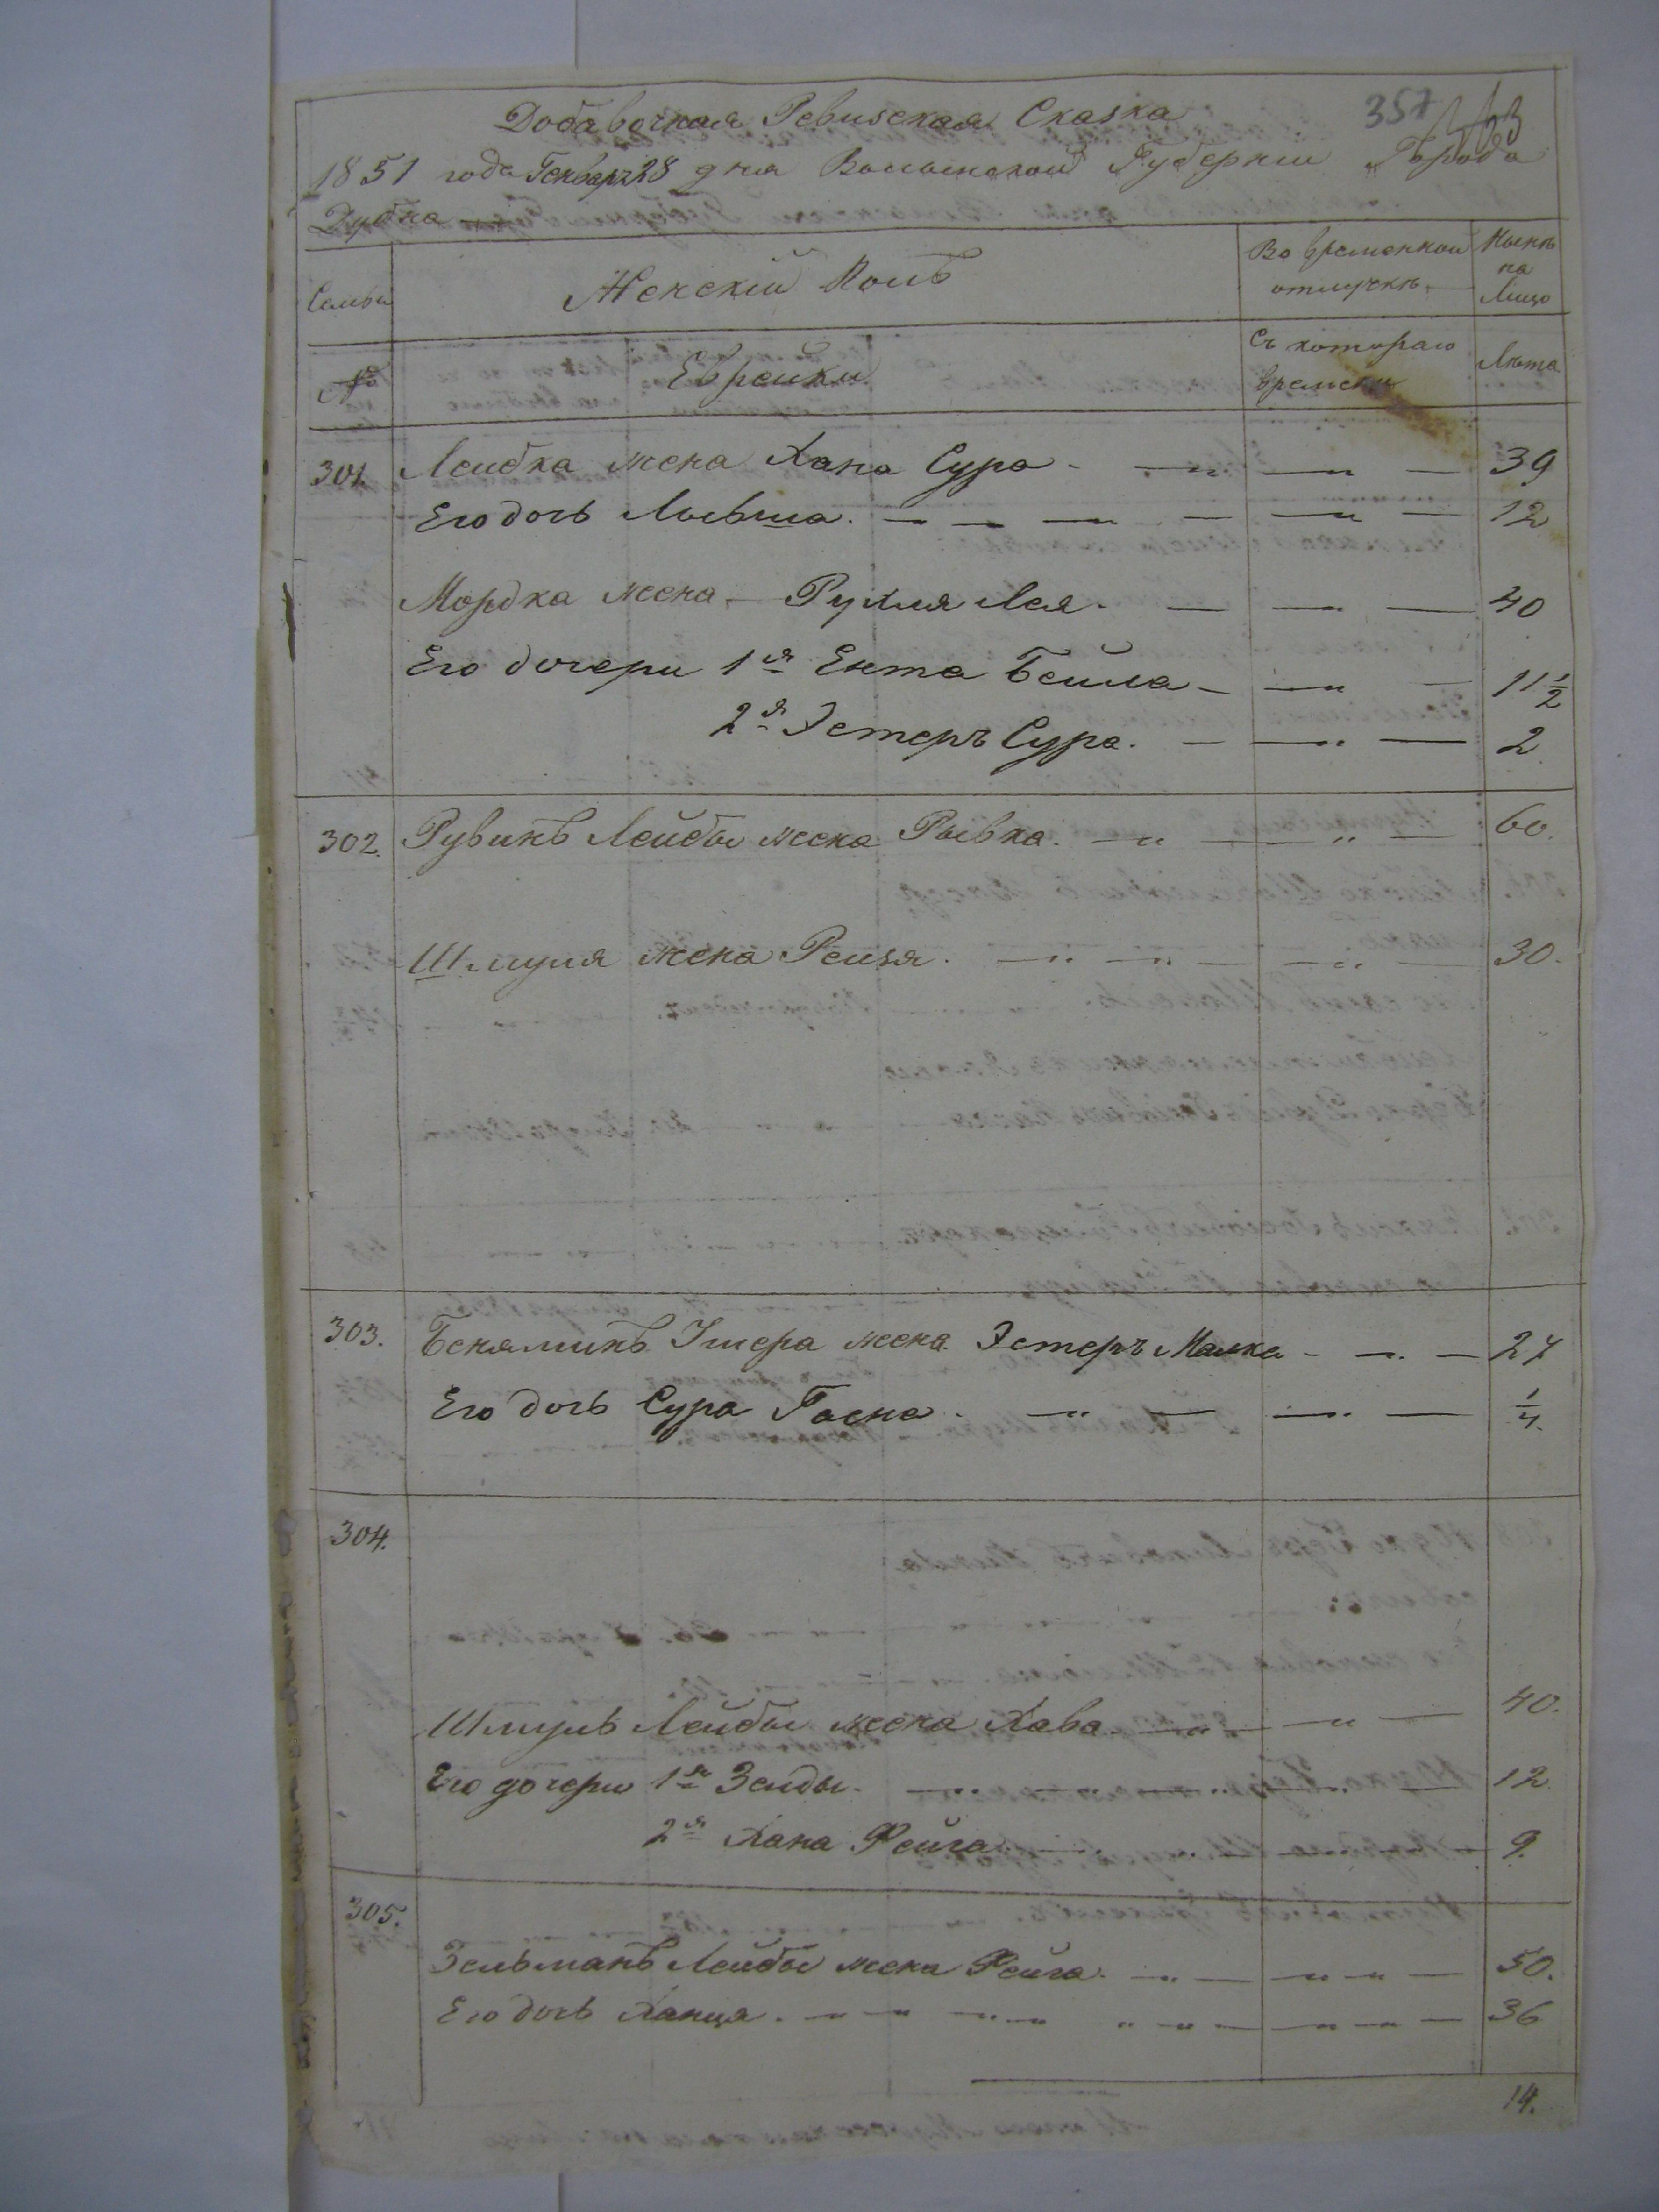 Добавочная Ревизская Сказка 357
1851 года Генваря 28 дня Волынской Губернии Города
Дубна
Семьи Женскій Полъ Во временной отлучкѣ Нынѣ на Лицо
№ Еврейки Съ котораго времени Лѣта
301. Лейбка жена Хана Сура 39
Его дочь 12
Мордка жена Рухля Лея 40
Его дочери 1я Ента Бейла 11 1/2
2я Эстеръ Сура 2
302. Рувинъ Лейбы жена Рывка 60.
Шмуля жена Рейзя 30.
303. Беняминъ Ушера жена Эстеръ Малка 27
Его дочь Сура Гасна 1/4.
304.
Шмуль Лейбы жена Хава 40.
Его дочери 1я Зельды 12
2я Хана Фейга 9.
305.
Зельманъ Лейбы жена Фейга 50.
Его дочь Ханця 36
14.